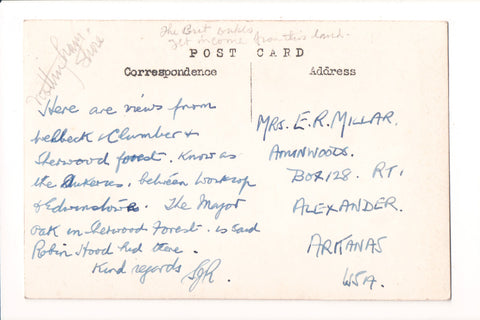 Nottingham
Shire
The Brit Dukes
get income from this land.
POST CARD
Correspondence
Address
Here are views from
Welbeck & Clumber &
Sherwood forest. Know as
the Dukeries. between Worksop
& Edwinstowe. The Major
oak in Sherwood Forest. is said
Robin Hood hid there.
Kind regards SJR.
MRS. E.R. MILLAR.
BOX 128. RT.
ALEXANDER.
ARKANAS
USA.